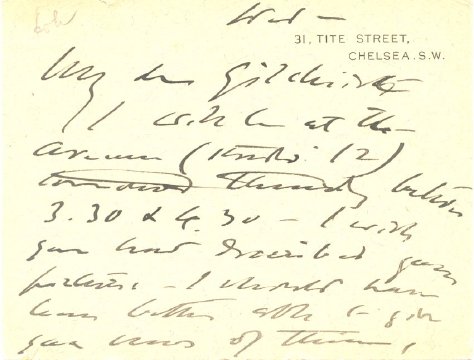 Wed -
31, TITE STREET,
CHELSEA. S.W.
My dear Gilchrist
I will be at the
Avenue (Studio 12)
tomorrow Thursday between
3.30 & 4.30 - I wish
you had described your
pictures. - I should have
been better able to give
you news of them,